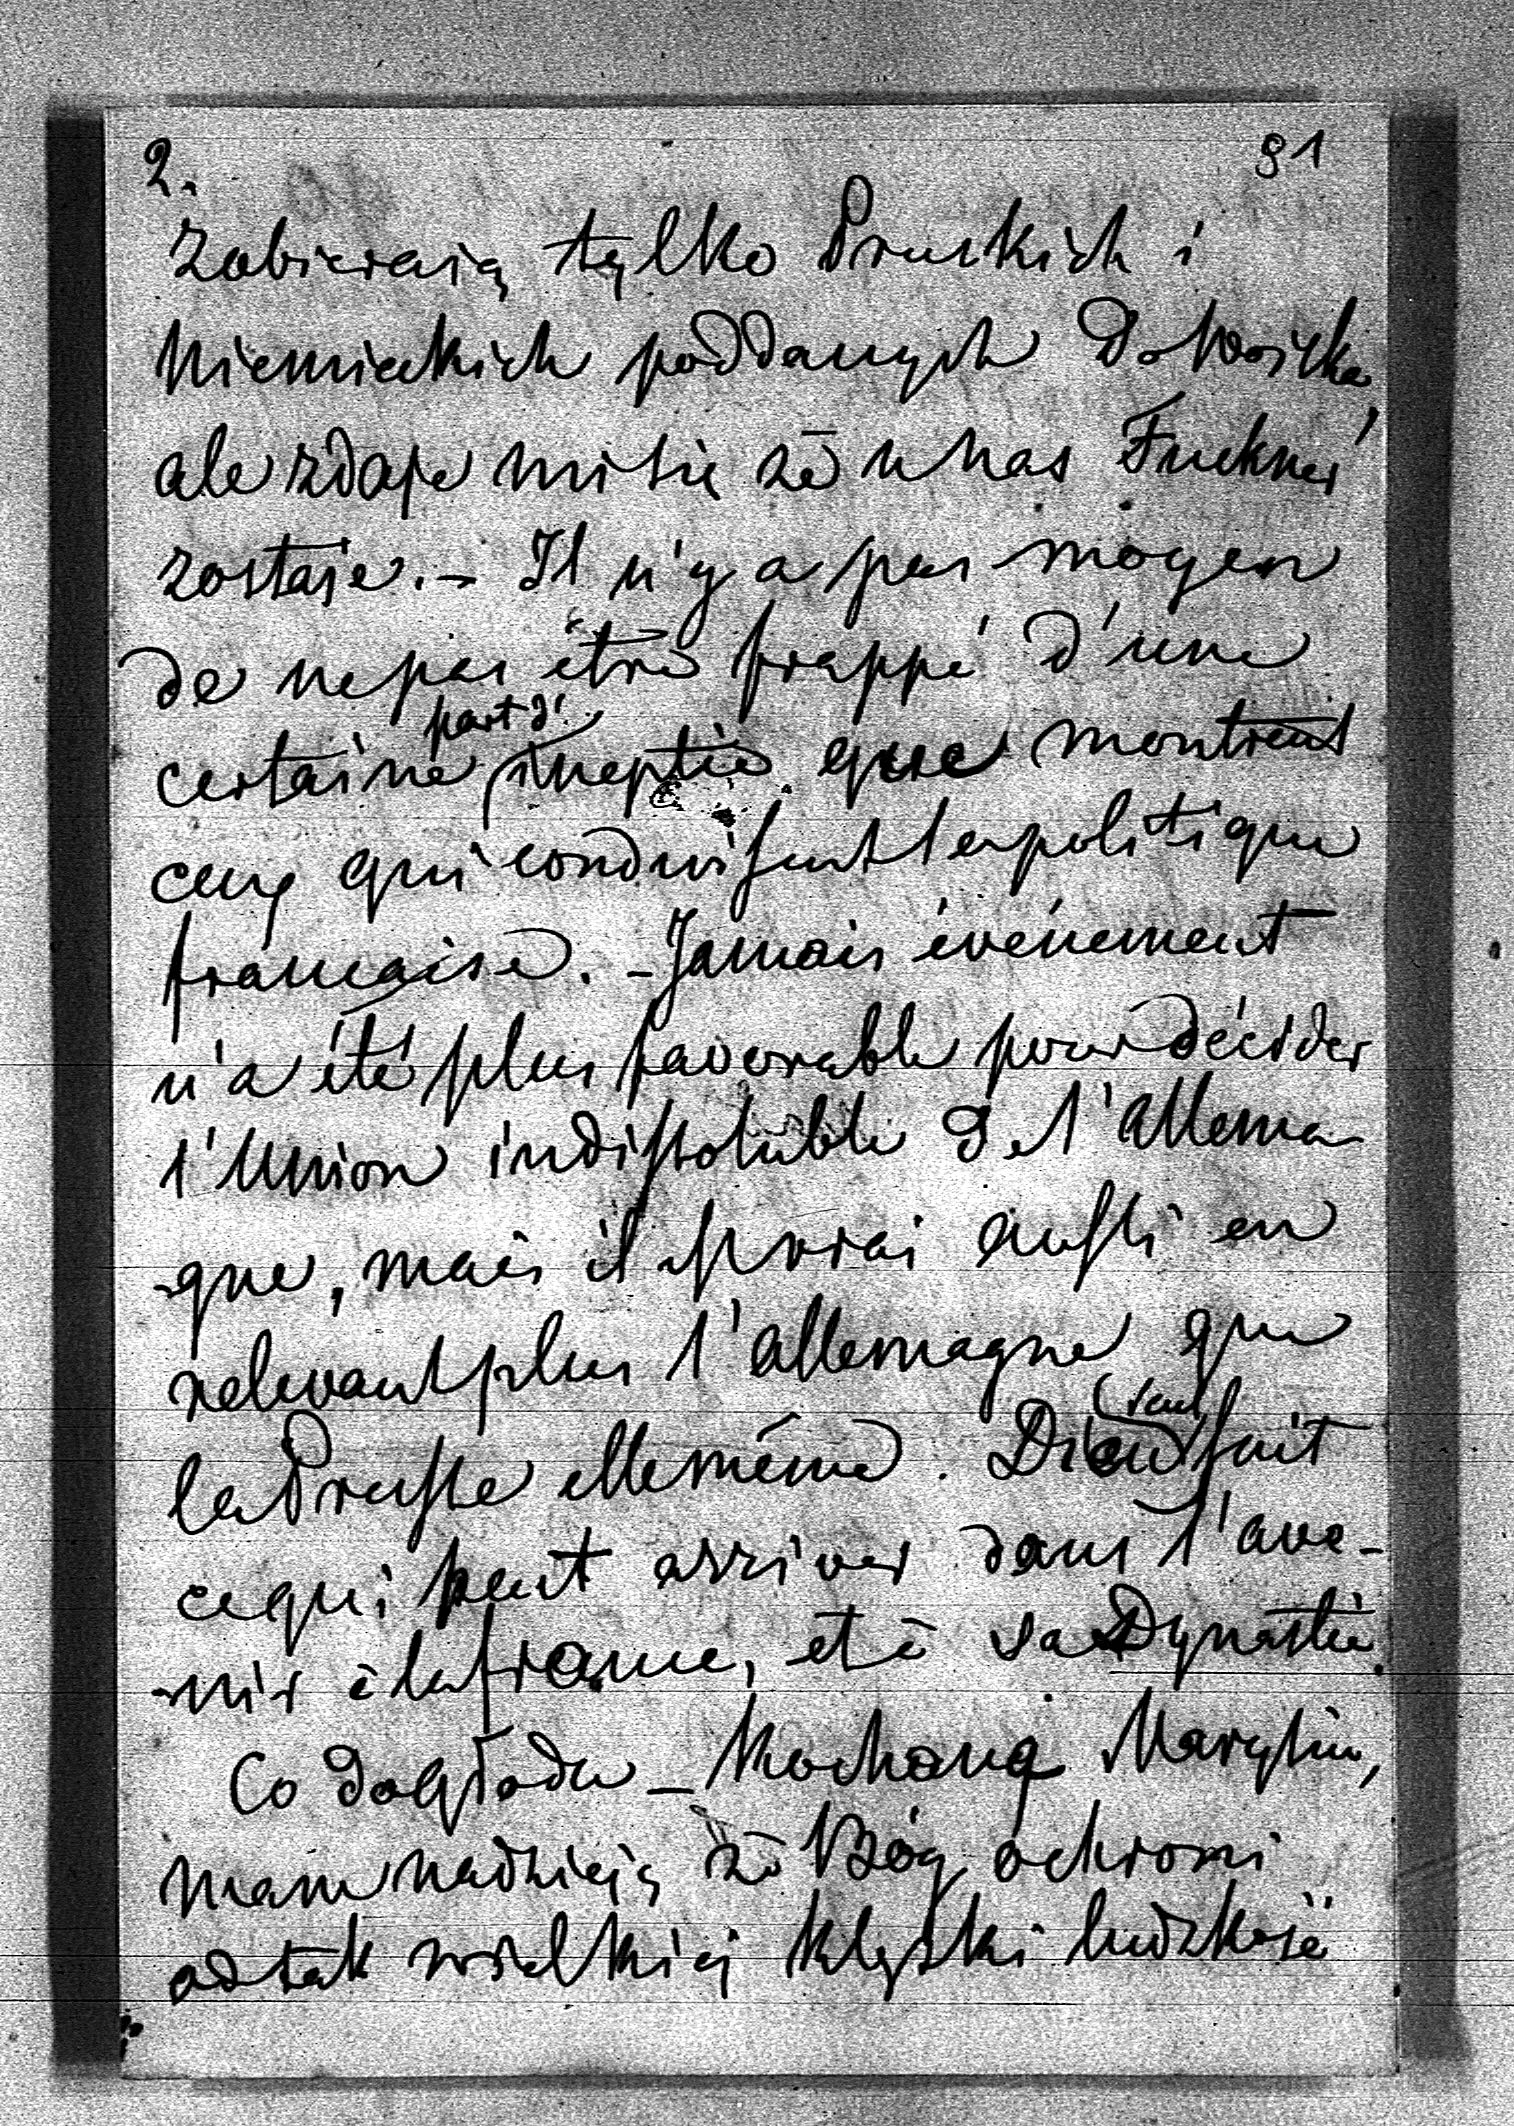 2.
91
zabieraią tylko Pruskich i
Niemieckich poddanych do Woiska,
ale zdaje mi się że u nas Fuckner
zostaje. – Il n'y a pas moyen
de ne pas être frappé d'une
part d'
certaine ineptie que montrent
ceux qui conduisent la politique
française. – Jamais événement
n'a été plus favorable pour décider
l'Union indissoluble de l'allema-
-gne, mais il est vrai aussi en
relevant plus l'allemagne que
la Prusse elle même. Dieu seul sait
ce qui peut arriver dans l'ave-
-nir à la france, et à sa Dynastie.
Co do głodu – Kochana Maryniu,
mam nadzieję że Bóg ochroni
od tak wielkiej klęski ludzkość